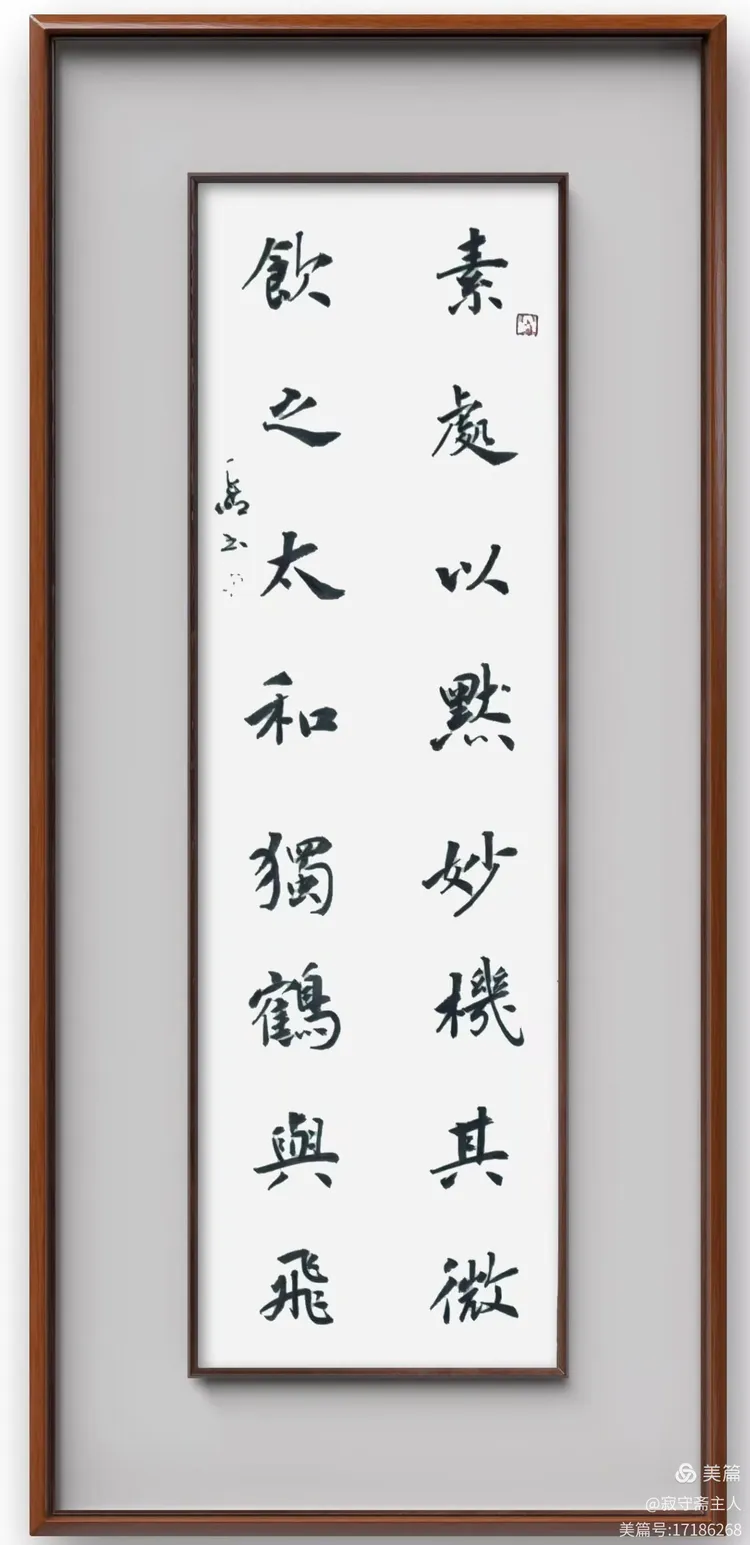 素處以默妙機其微
飲之太和獨鶴與飛
美篇
@寂守斋主人
美篇号:17186268